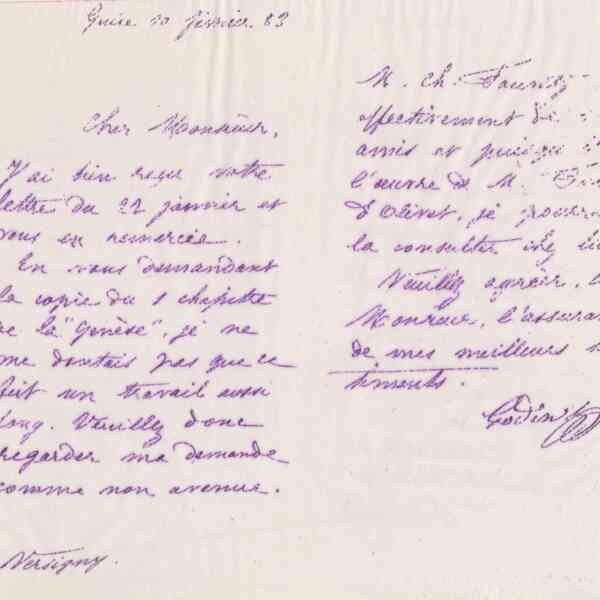 Guise 10 février 83
Cher Monsieur,
J'ai bien reçu votre
lettre du 22 janvier et
vous en remercie.
En vous demandant
la copie du 1 chapitre
de la "Genèse", je ne
me doutais pas que ce
fût un travail aussi
long. Veuillez donc
regarder ma demande
comme non avenue.
Versigny.
M. Ch. Fauvety
effectivement de
amis et puisqu'
l'œuvre de M.
d'Olivet, je
la consulter chez
Veuillez agréer,
Monsieur, l'assuran
de mes meilleurs
timents.
Godin